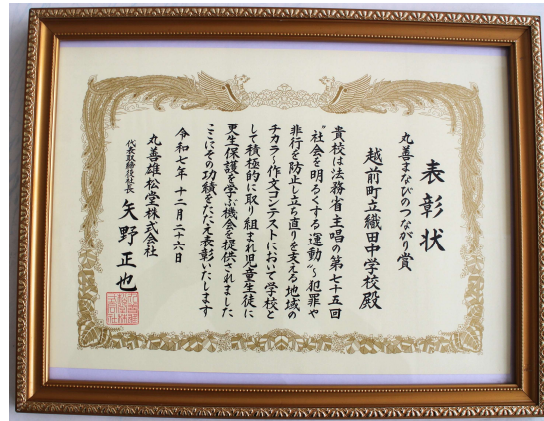 表彰状
丸善まなびのつながり賞
越前町立織田中学校殿
貴校は法務省主唱の第七十五回
"社会を明るくする運動"~犯罪や
非行を防止し立ち直りを支える地域の
チカラ~作文コンテストにおいて学校と
して積極的に取り組まれ児童生徒に
更生保護を学ぶ機会を提供されました
ここにその功績をたたえ表彰いたします
令和七年 十二月 二十六日
丸善雄松堂株式会社
代表取締役社長 矢野正也